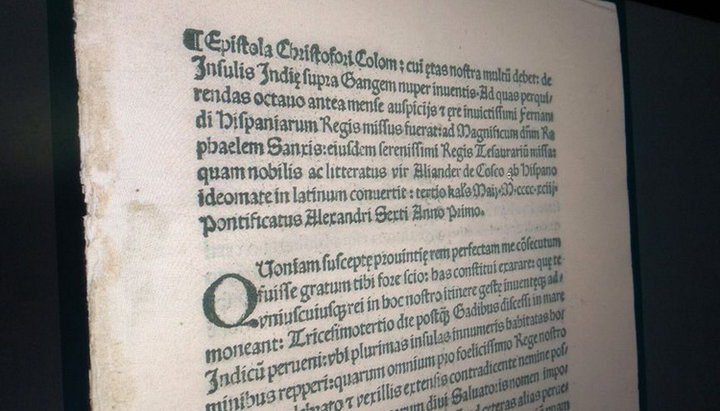 ¶ Epistola Christofori Colom: cui ętas nostra multū debet: de
Insulis Indię supra Gangem nuper inuentis. Ad quas perqui⸗
rendas octauo antea mense auspicijs ⁊ ęre inuictissimi Fernan
di Hispaniarum Regis missus fuerat: ad Magnificum dñm Ra
phaelem Sanxis: eiusdem serenissimi Regis Tesaurariū missa:
quam nobilis ac litteratus vir Aliander de Cosco ab Hispano
ideomate in latinum conuertit: tertio kaľs Maij. M.cccc.xciij.
Pontificatus Alexandri Sexti Anno Primo.
Quoniam susceptę prouintię rem perfectam me cōsecutum
fuisse gratum tibi fore scio: has constitui exarare: quę te
vniuscuiusqꝫ rei in hoc nostro itinere gestę inuentęqꝫ ad⸗
moneant: Tricesimotertio die postq̃ȝ Gadibus discessi in mare
Indicū perueni: vbi plurimas insulas innumeris habitatas ho⸗
minibus repperi: quarum omnium pro foelicissimo Rege nostro
⁊ vexillis extensis contradicente nemine pos⸗
diui Saluatoris nomen impo
alias peruen